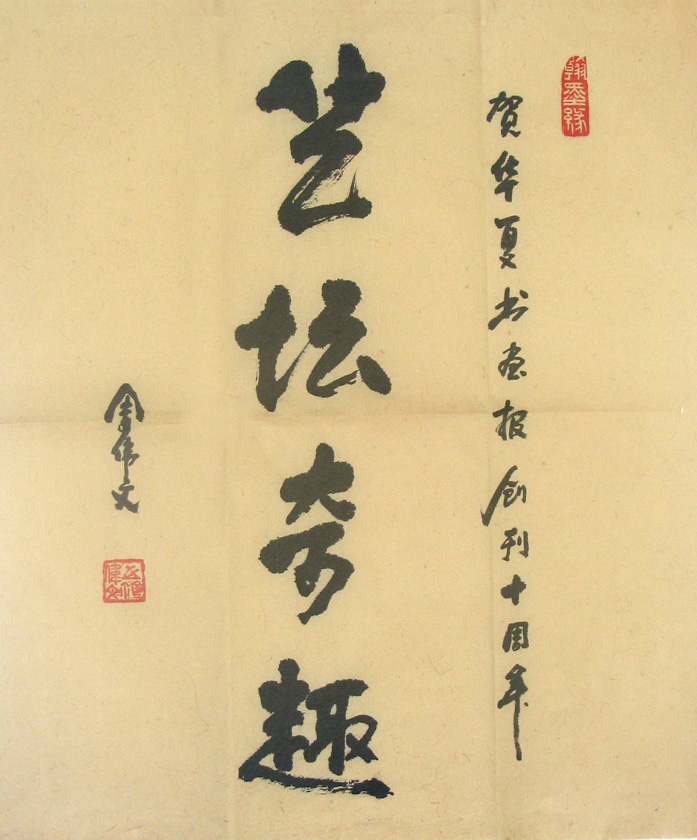 翰墨缘
贺华夏书画报创刊十周年
艺坛奇趣
周伟文